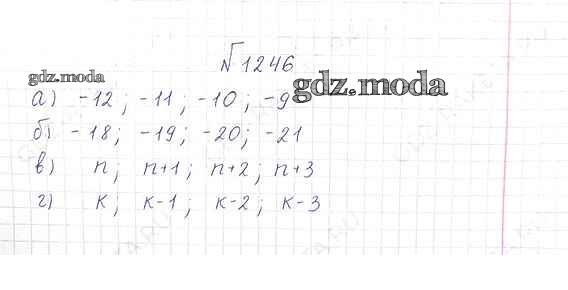 №1246
gdz.moda
а) -12; -11; -10; -9
gdz.moda
б) -18; -19; -20; -21
в) n; n+1; n+2; n+3
г) к; к-1; к-2; к-3